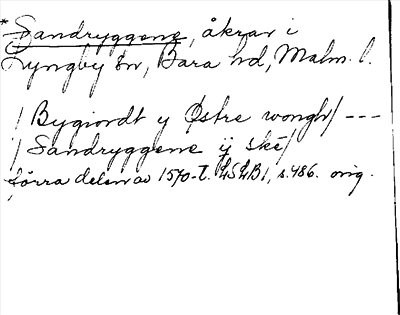 *Sandryggene, åkrar i
Lyngby sn, Bara hd, Malm. l.
/ Bygiordt y Østre wongh/ ---
/ Sandryggene ÿ ske/
förra delen av 1570-t. LSLB1, s.486. orig.